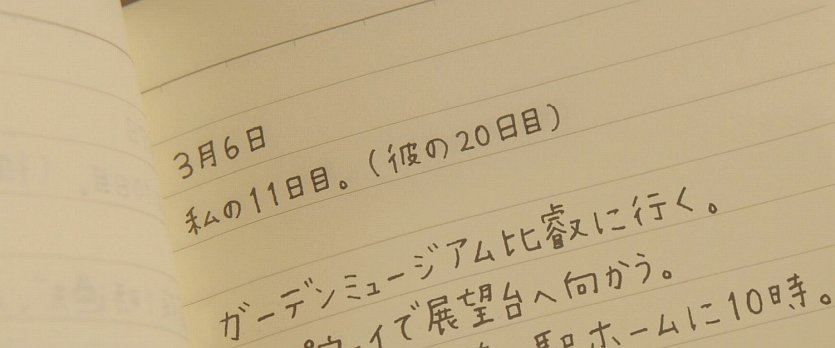 3月6日
私の11日目。(彼の20日目)
ガーデンミュージアム比叡に行く。
ウェイで展望台へ向かう。
駅ホームに10時。